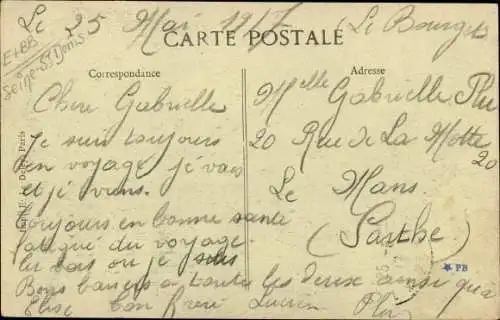 Le 25 Mai 1917 (Le Bourget
CARTE POSTALE
Seine-St Denis
Correspondance
Chère Gabrielle
Je suis toujours
en voyage je vais
et je viens.
toujours en bonne santé
fatigué du voyage.
je suis
Bons baisers à toutes les deux ainsi qu'a
Elise ton frère Lucien
Adresse
Melle Gabrielle
20 Rue de La Motte
20
Le Mans
(Sarthe)
PB
Paris